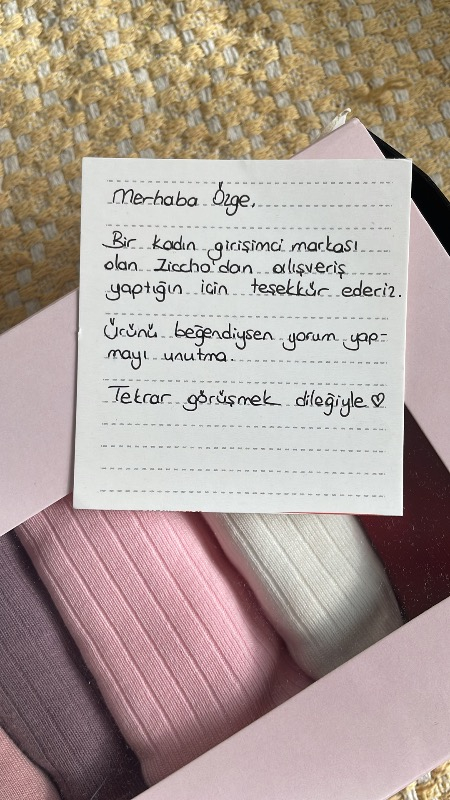 Merhaba Özge,
Bir kadın girişimci markası
olan Ziccho'dan alışveriş
yaptığın için teşekkür ederiz.
Ürünü beğendiysen yorum yap-
mayı unutma.
Tekrar görüşmek dileğiyle ♡